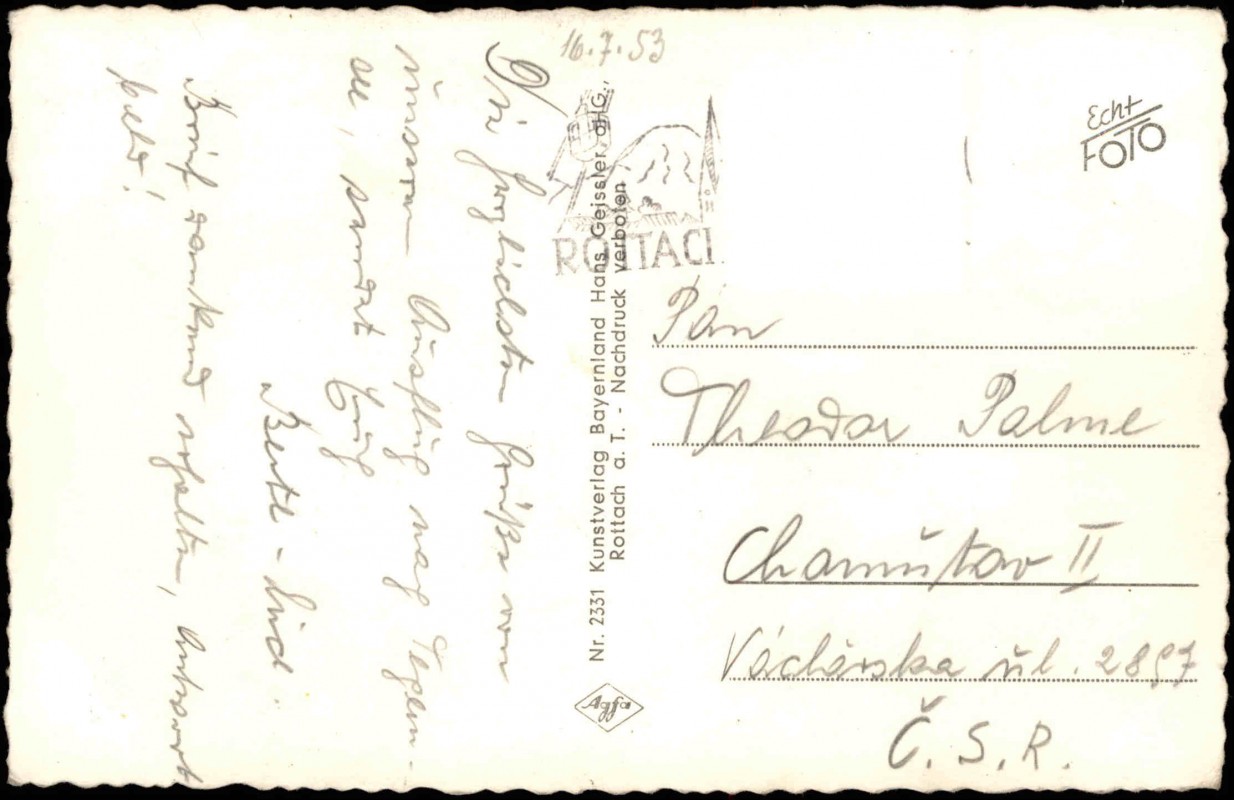 16.7.53
Die herzlichsten Grüße von
unserem Ausflug nach Tegern-
see, sendet Euch
Bertl - Lied.
Brief dankend erhalten, Antwort
bald!
Nr. 2331 Kunstverlag Bayernland Hans Geissler oHG.,
Rottach a. T. - Nachdruck verboten
Agfa
ROTTACH
Echt
FOTO
Pán
Theodor Palme
Chomutov II
ul. 2897
Č.S.R.